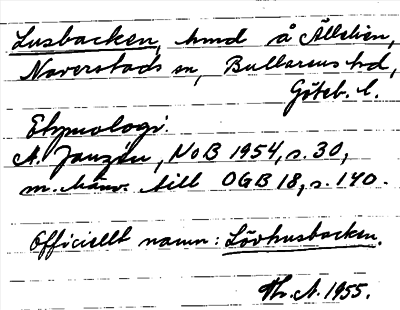 Lusbacken, hmd å Ällelien,
Naverstads sn, Bullarens hd,
Göteb. l.
Etymologi.
A. Janzén, NoB 1954, s. 30,
m. hänv. till OGB 18, s. 140.
Officiellt namn: Lövhusbacken.
Th. A. 1955.